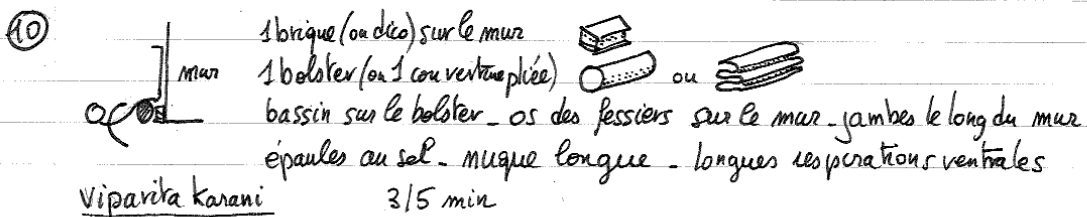 10
1 brique (ou dico) sur le mur
mur
1 bolster (ou 1 couverture pliée) ou
bassin sur le bolster - os des fessiers sur le mur - jambes le long du mur
épaules au sol - nuque longue - longues respirations ventrales
Viparita Karani 3/5 min